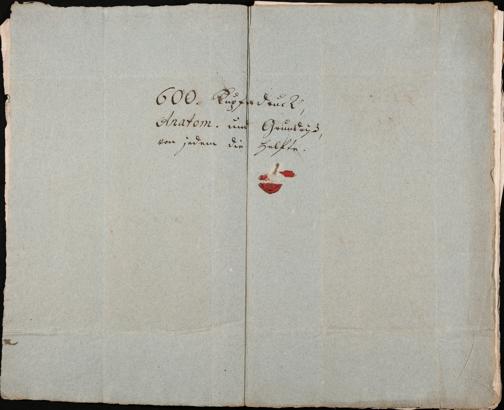 600. Kupferdruck,
Anatom. und Grundriß,
von jedem die Helfte.